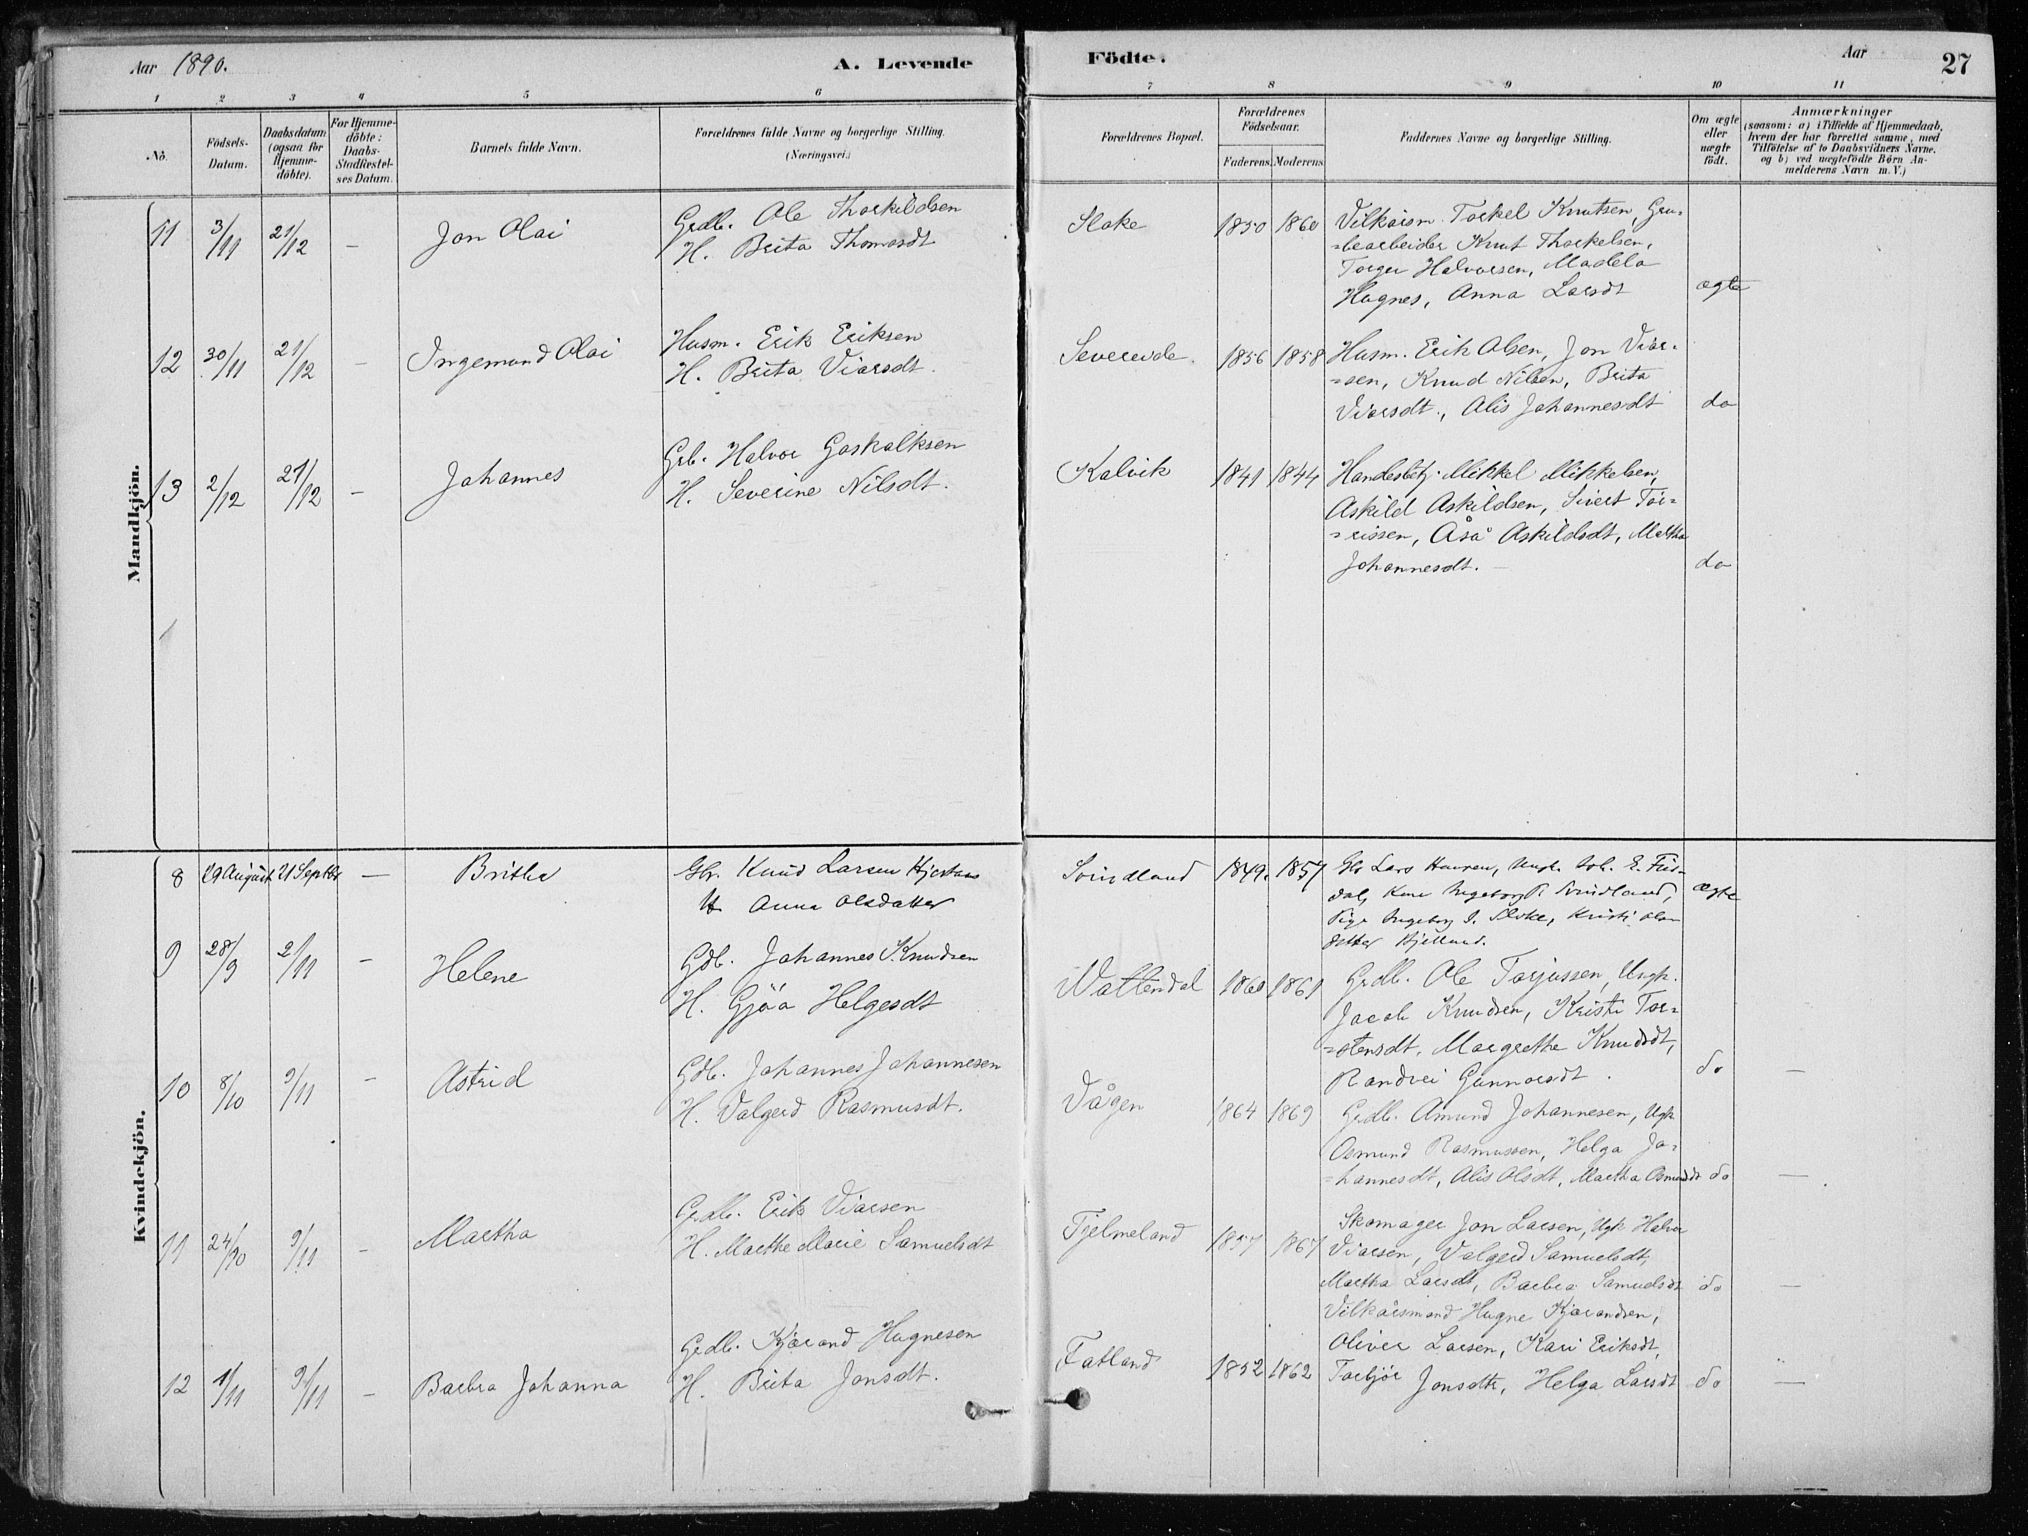 Aar 1890.
A. Levende
Födte.
Aar
27
1 2 3 4 5 6 7 8 9 10 11
No.
Födsels-
Datum.
Daabsdatum
(ogsaa for
Hjemme-
döbte).
For Hjemme-
döbte:
Daabs-
Stadfæstel-
ses Datum.
Barnets fulde Navn.
Forældrenes fulde Navne og borgerlige Stilling.
(Næringsvei.)
Forældrenes Bopæl.
Forældrenes
Födselsaar.
Faderens. Moderens.
Faddernes Navne og borgerlige Stilling.
Om ægte
eller
uægte
födt.
Anmærkninger
(saasom: a) i Tilfælde af Hjemmedaab,
hvem der har forrettet samme, med
Tilföielse af to Daabsvidners Navne,
og b) ved uægtefödte Börn An-
melderens Navn m. V.)
Mandkjön.
11 3/11 21/12 - Jon Olai
Grdb. Ole Thorkildsen
H. Brita Thomasdt
Sloke 1850 1860
Vilkårsm. Torkel Knutsen, Gru-
=bearbeider Knut Thorkelsen,
Torger Halvorsen, Madela
Hugnes, Anna Larsdt ægte
12 30/11 21/12 - Ingemund Olai
Husm. Erik Eriksen
H. Brita Viarsdt.
Severeide. 1856 1858
Husm. Erik Olsen, Jon Viar-
=sen, Knud Nilsen, Brita
Viarsdt., Alis Johannesdt do
13 2/12 21/12 - Johannes
Grb. Halvor Goskalksen
H. Severine Nilsdt.
Kalvik 1841 1844
Handelsbetj. Mikkel Mikkelsen,
Askild Askildsen, Sivert Tor-
=rissen, Åså Askildsdt, Martha
Johannesdt. - do
Kvindekjön.
8 29 August 21 Septbr - Britha
Gbr. Knud Larsen
H. Anna Olsdatter
Svindland 1849. 1857
Gbr Lars Ungk. Joh. E.
dal, Kone Ingeborg Svindland,
Pige Ingeborg Sloke, Kristi
datter Kjelland. ægte
9 28/9 2/11 - Helene
Gdb. Johannes Knudsen
H. Gjöa Helgesdt
Wattendal 1860 1861
Grdb. Ole Torjussen, Ungk.
Jacob Knudsen, Kristi Tor-
=stensdt, Margrethe Knudsdt,
Randvei Gunnarsdt. do -
10 8/10 9/11 - Astrid
Gdb. Johannes Johannesen
H. Valgerd Rasmusdt.
Vågen 1864 1869
Grdb. Amund Johannesen, Ugk
Osmund Rasmussen, Helga Jo-
=hannesdt, Alis Olsdt, Martha Osmundsdt do -
11 24/10 9/11 - Martha
Grdb. Erik Viarsen
H. Marthe Marie Samuelsdt
Fjelmeland 1857 1867
Skomager Jon Larsen, Ugk Halvor
Viarsen, Valgerd Samuelsdt,
Martha Larsdt, Barbra Samuelsdt do -
12 1/11 9/11 - Barbra Johanna
Grdb. Kjarand Hugnesen
H. Brita Jonsdt.
Fatland 1852 1862
Vilkårsmand Hugne Kjarandsen,
Oliver Larsen, Kari Eriksdt,
Torbjör Jonsdtr, Helga Larsdt do -